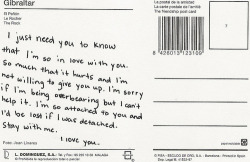 Gibraltar
El Peñón
Le Rocher
The Rock
I just need you to know
that I'm so in love with you.
So much that it hurts and I'm
not willing to give you up. I'm sorry
if I'm being overbearing but I can't
help it. I'm so attached to you and
I'd be lost if I was detached.
Stay with me.
I love you.
Foto: Joan Linares
L. DOMINGUEZ, S.A.
La postal de la amistad
La carte postale de l'amitié
The friendship post-card
8 426013 123109